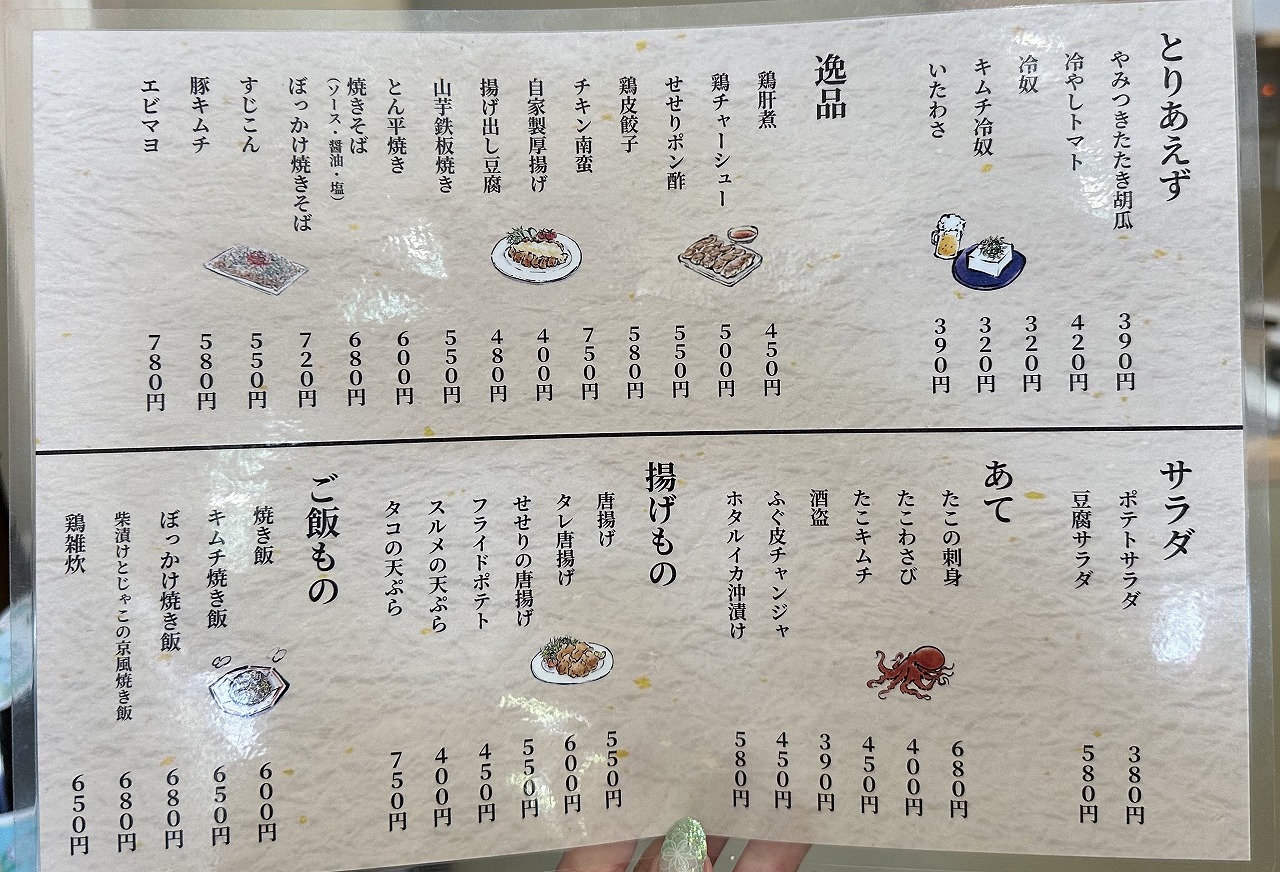 とりあえず
やみつきたたき胡瓜 390円
冷やしトマト 420円
冷奴 320円
キムチ冷奴 320円
いたわさ 390円
逸品
鶏肝煮 450円
鶏チャーシュー 500円
せせりポン酢 550円
鶏皮餃子 580円
チキン南蛮 750円
自家製厚揚げ 400円
揚げ出し豆腐 480円
山芋鉄板焼き 550円
とん平焼き 600円
焼きそば（ソース・醤油・塩） 680円
ぼっかけ焼きそば 720円
すじこん 550円
豚キムチ 580円
エビマヨ 780円
サラダ
ポテトサラダ 380円
豆腐サラダ 580円
あて
たこの刺身 680円
たこわさび 400円
たこキムチ 450円
酒盗 390円
ふぐ皮チャンジャ 450円
ホタルイカ沖漬け 580円
揚げもの
唐揚げ 550円
タレ唐揚げ 600円
せせりの唐揚げ 550円
フライドポテト 450円
スルメの天ぷら 400円
タコの天ぷら 750円
ご飯もの
焼き飯 600円
キムチ焼き飯 650円
ぼっかけ焼き飯 680円
柴漬けとじゃこの京風焼き飯 680円
鶏雑炊 650円